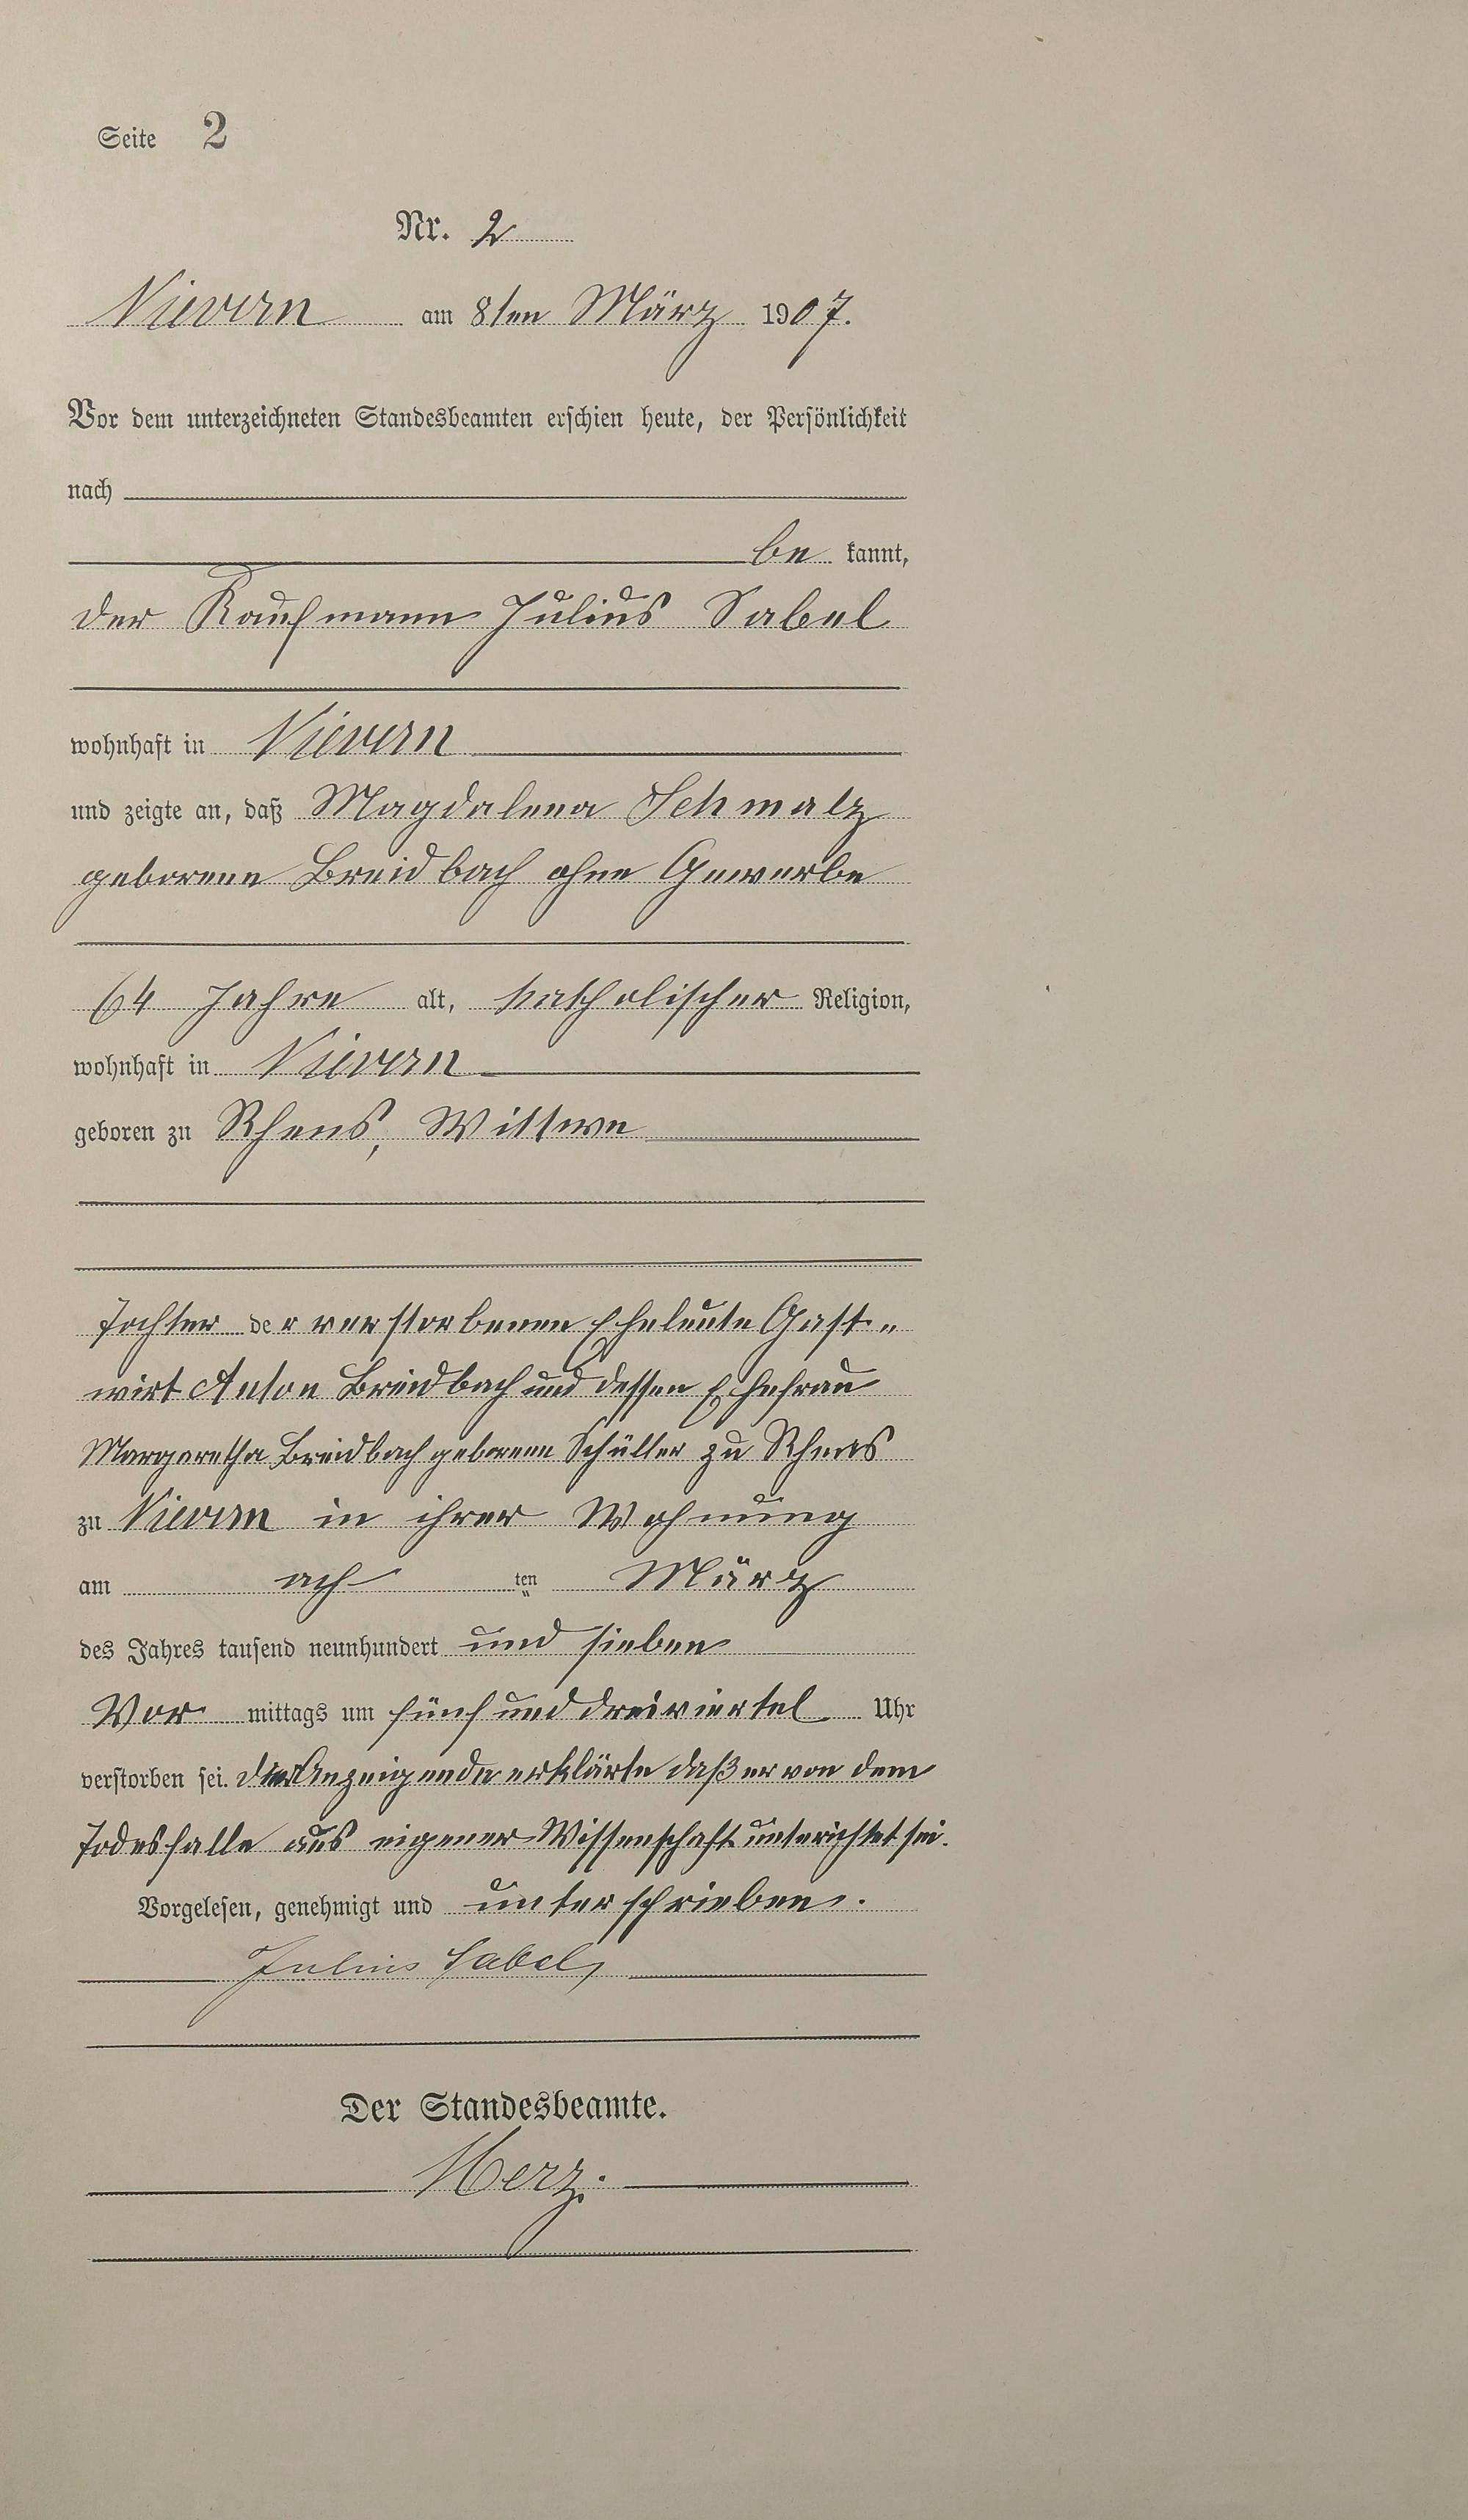 Seite 2
Nr. 2
Nievern am 8ten März 1907.
Vor dem unterzeichneten Standesbeamten erschien heute, der Persönlichkeit
nach
be kannt,
der Kaufmann Julius Sabel
wohnhaft in Nievern
und zeigte an, daß Magdalena Schmalz
geborene Breidbach ohne Gewerbe
64 Jahre alt, katholischer Religion,
wohnhaft in Nievern
geboren zu Rhens, Wittwe
Tochter der verstorbenen Eheleute Gast„
wirt Anton Breidbach und dessen Ehefrau
Margaretha Breidbach geborene Schüller zu Rhens
zu Nievern in ihrer Wohnung
am ach ten März
des Jahres tausend neunhundert und sieben
Vor mittags um fünf und dreiviertel Uhr
verstorben sei. Der Anzeigende erklärte daß er von dem
Todesfalle aus eigener Wissenschaft unterichtet sei.
Vorgelesen, genehmigt und unterschrieben.
Julius Sabel,
Der Standesbeamte.
Herz.